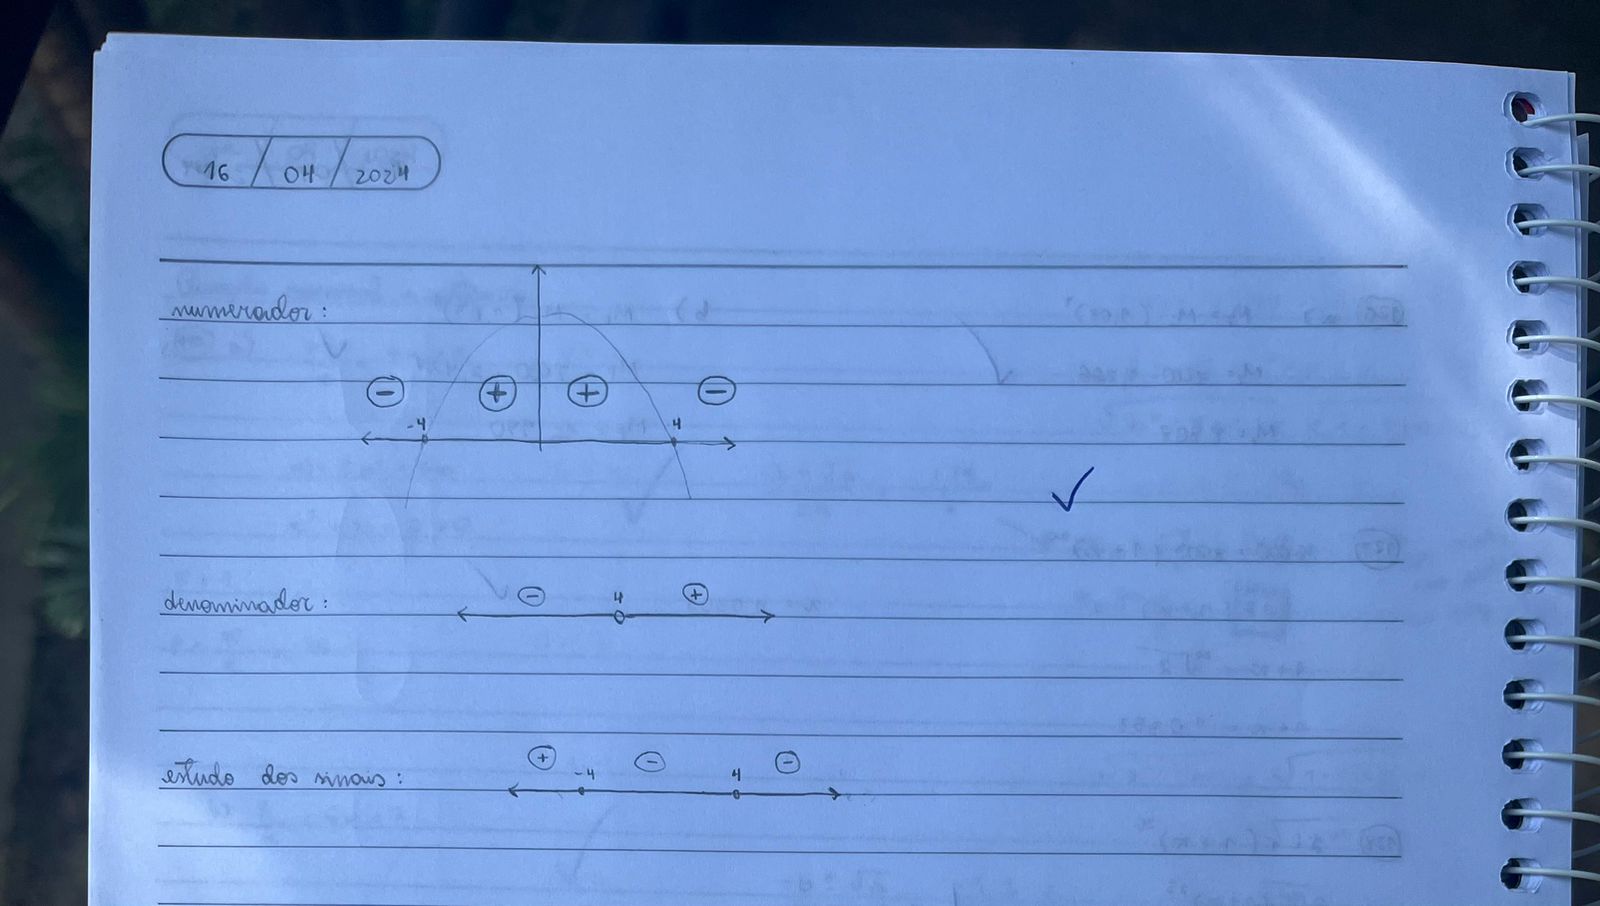 16 / 04 / 2024
numerador:
- + + -
-4 4
denominador:
- 4 +
+ - -
estudo dos sinais: -4 4